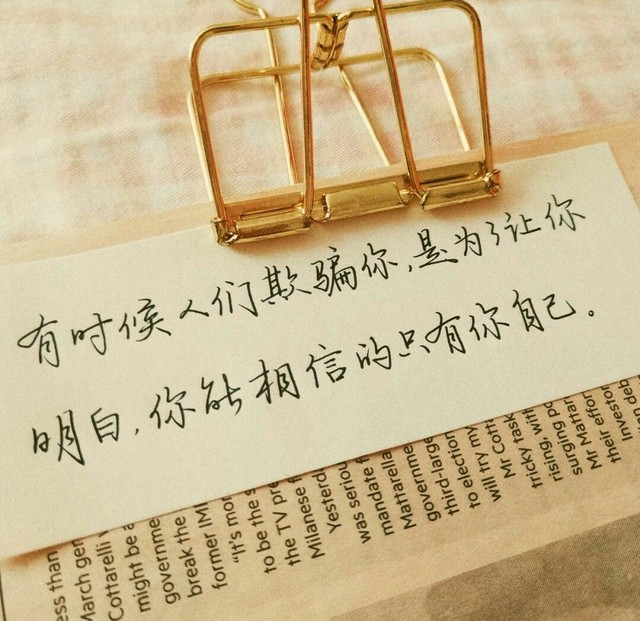 有时候人们欺骗你,是为了让你
明白,你能相信的只有你自己。
ess than
March gen
Cottarelli
might be a
governme
break the
former IM
"It's mor
to be the s
the TV pre
Milanese f
Yesterd
was seriou
mandate
Mattarella
governme
third-large
to election
will try my
Mr Cott
tricky task
rising, with
surging po
Mr Mattar
their effor
Investor